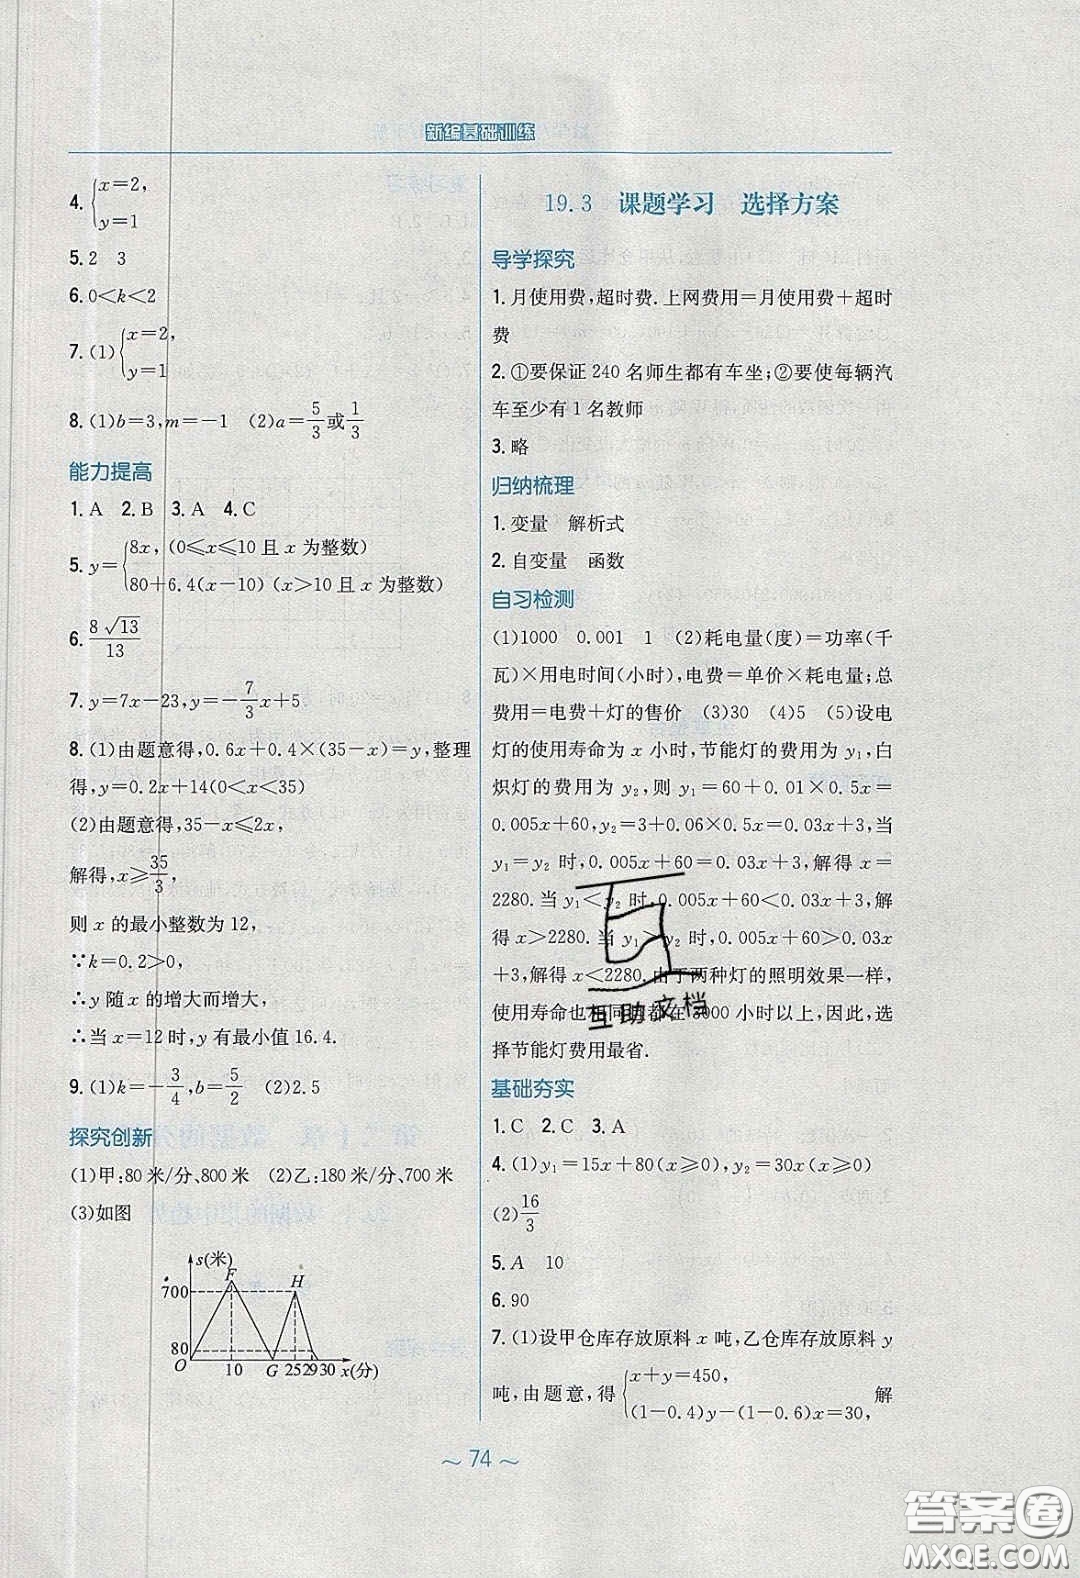 新编基础训练
4. {x=2,
y=1
5. 2　3
6. 0<k<2
7. (1) {x=2,
y=1
8. (1)b=3,m=-1　(2)a=5/3或1/3
能力提高
1. A　2. B　3. A　4. C
5. y={8x,(0≤x≤10且x为整数)
80+6.4(x-10)(x>10且x为整数)
6. 8√13/13
7. y=7x-23,y=-7/3x+5
8. (1)由题意得,0.6x+0.4×(35-x)=y,整理
得,y=0.2x+14(0<x<35)
(2)由题意得,35-x≤2x,
解得,x≥35/3,
则x的最小整数为12,
∵k=0.2>0,
∴y随x的增大而增大,
∴当x=12时,y有最小值16.4.
9. (1)k=-3/4,b=5/2　(2)2.5
探究创新
(1)甲:80米/分、800米　(2)乙:180米/分、700米
(3)如图
s(米)
F
H
700
80
O
10
G
25
29
30
x(分)
19.3　课题学习　选择方案
导学探究
1. 月使用费,超时费.上网费用=月使用费+超时
费
2. ①要保证240名师生都有车坐;②要使每辆汽
车至少有1名教师
3. 略
归纳梳理
1. 变量　解析式
2. 自变量　函数
自习检测
(1)1000　0.001　1　(2)耗电量(度)=功率(千
瓦)×用电时间(小时),电费=单价×耗电量;总
费用=电费+灯的售价　(3)30　(4)5　(5)设电
灯的使用寿命为x小时,节能灯的费用为y₁,白
炽灯的费用为y₂,则y₁=60+0.01×0.5x=
0.005x+60,y₂=3+0.06×0.5x=0.03x+3,当
y₁=y₂时,0.005x+60=0.03x+3,解得x=
2280.当y₁<y₂时,0.005x+60<0.03x+3,解
得x>2280.当y₁>y₂时,0.005x+60>0.03x
+3,解得x<2280.由于两种灯的照明效果一样,
使用寿命也相同且都在3000小时以上,因此,选
择节能灯费用最省.
基础夯实
1. C　2. C　3. A
4. (1)y₁=15x+80(x≥0),y₂=30x(x≥0)
(2)16/3
5. A　10
6. 90
7. (1)设甲仓库存放原料x吨,乙仓库存放原料y
吨,由题意,得{x+y=450,
(1-0.4)y-(1-0.6)x=30,　解
~74~
互助文档
答案圈
MXQE.COM